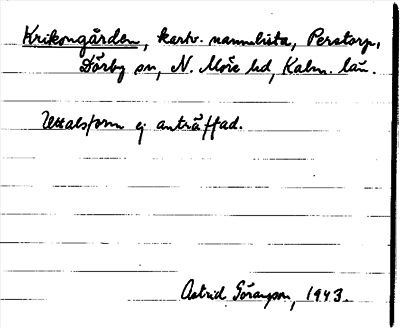 Krikongården, kartv. namnlista, Perstorp,
Dörby sn, N. Möre hd, Kalm. län.
Uttalsform ej anträffad.
Astrid Göransson, 1943.